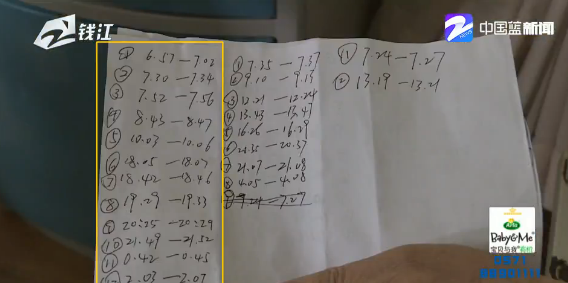 钱江
中国蓝新闻
① 6.57—7.02
② 7.30—7.34
③ 7.52—7.56
④ 8.43—8.47
⑤ 10.03—10.06
⑥ 18.05—18.07
⑦ 18.42—18.46
⑧ 19.29—19.33
⑨ 20:25—20:29
⑩ 21.49—21.52
⑪ 0.42—0.45
⑫ 2.03—2.07
① 7.35—7.37
② 9.10—9.13
③ 12.21—12.24
④ 13.43—13.47
⑤ 16.26—16.29
⑥ 20.35—20.37
⑦ 21.07—21.08
⑧ 4.05—4.08
⑨ 7.24—7.27
① 7.24—7.27
② 13.19—13.21
Arla
Baby&Me
宝贝与我
0571